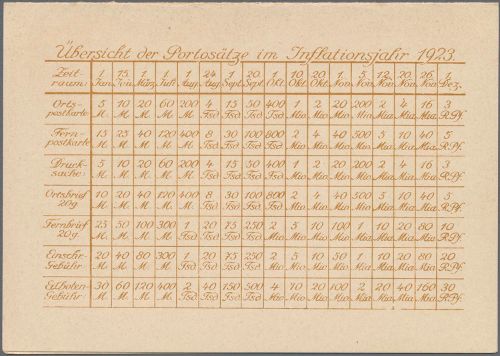 Übersicht der Portosätze im Inflationsjahr 1923.
Zeit- 1 15. 1 1 1 24 1 20 1 10 20 1 5 12 20 26 1
raum: Jan. Jan. März Juli Aug. Aug. Sept. Sept. Okt. Okt. Okt. Nov. Nov. Nov. Nov. Nov. Dez.
Orts- 5 10 20 60 200 4 15 50 400 1 2 20 200 2 4 16 3
postkarte M. M. M. M. M. Tsd Tsd. Tsd. Tsd Mio Mio Mio. Mio. Mia Mia Mia. R.Pf.
Fern- 15 25 40 120 400 8 30 100 800 2 4 40 500 5 10 40 5
postkarte M. M. M. M. M. Tsd Tsd. Tsd. Tsd Mio Mio Mio. Mio. Mia Mia Mia. R.Pf.
Druck- 5 10 20 60 200 4 15 50 400 1 2 20 200 2 4 16 3
sache: M. M. M. M. M. Tsd Tsd. Tsd. Tsd Mio Mio Mio. Mio. Mia Mia Mia. R.Pf.
Ortsbrief 10 20 40 120 400 8 30 100 800 2 4 40 500 5 10 40 5
20g. M. M. M. M. M. Tsd Tsd. Tsd. Tsd Mio Mio Mio. Mio. Mia Mia Mia. R.Pf.
Fernbrief 25 50 100 300 1 20 75 250 2 5 10 100 1 10 20 80 10
20g. M. M. M. M. Tsd. Tsd Tsd. Tsd. Mio Mio Mio Mio. Mia. Mia Mia Mia. R.Pf.
Einschr. 20 40 80 300 1 20 75 250 2 5 10 50 1 10 20 80 20
Gebühr M. M. M. M. Tsd. Tsd Tsd. Tsd. Mio Mio Mio Mio. Mia Mia Mia Mia. R.Pf.
Eilboten- 30 60 120 400 2 40 150 500 4 10 20 100 2 20 40 160 30
Gebühr M. M. M. M. Tsd. Tsd Tsd. Tsd. Mio Mio Mio Mio. Mia Mia Mia Mia R.Pf.